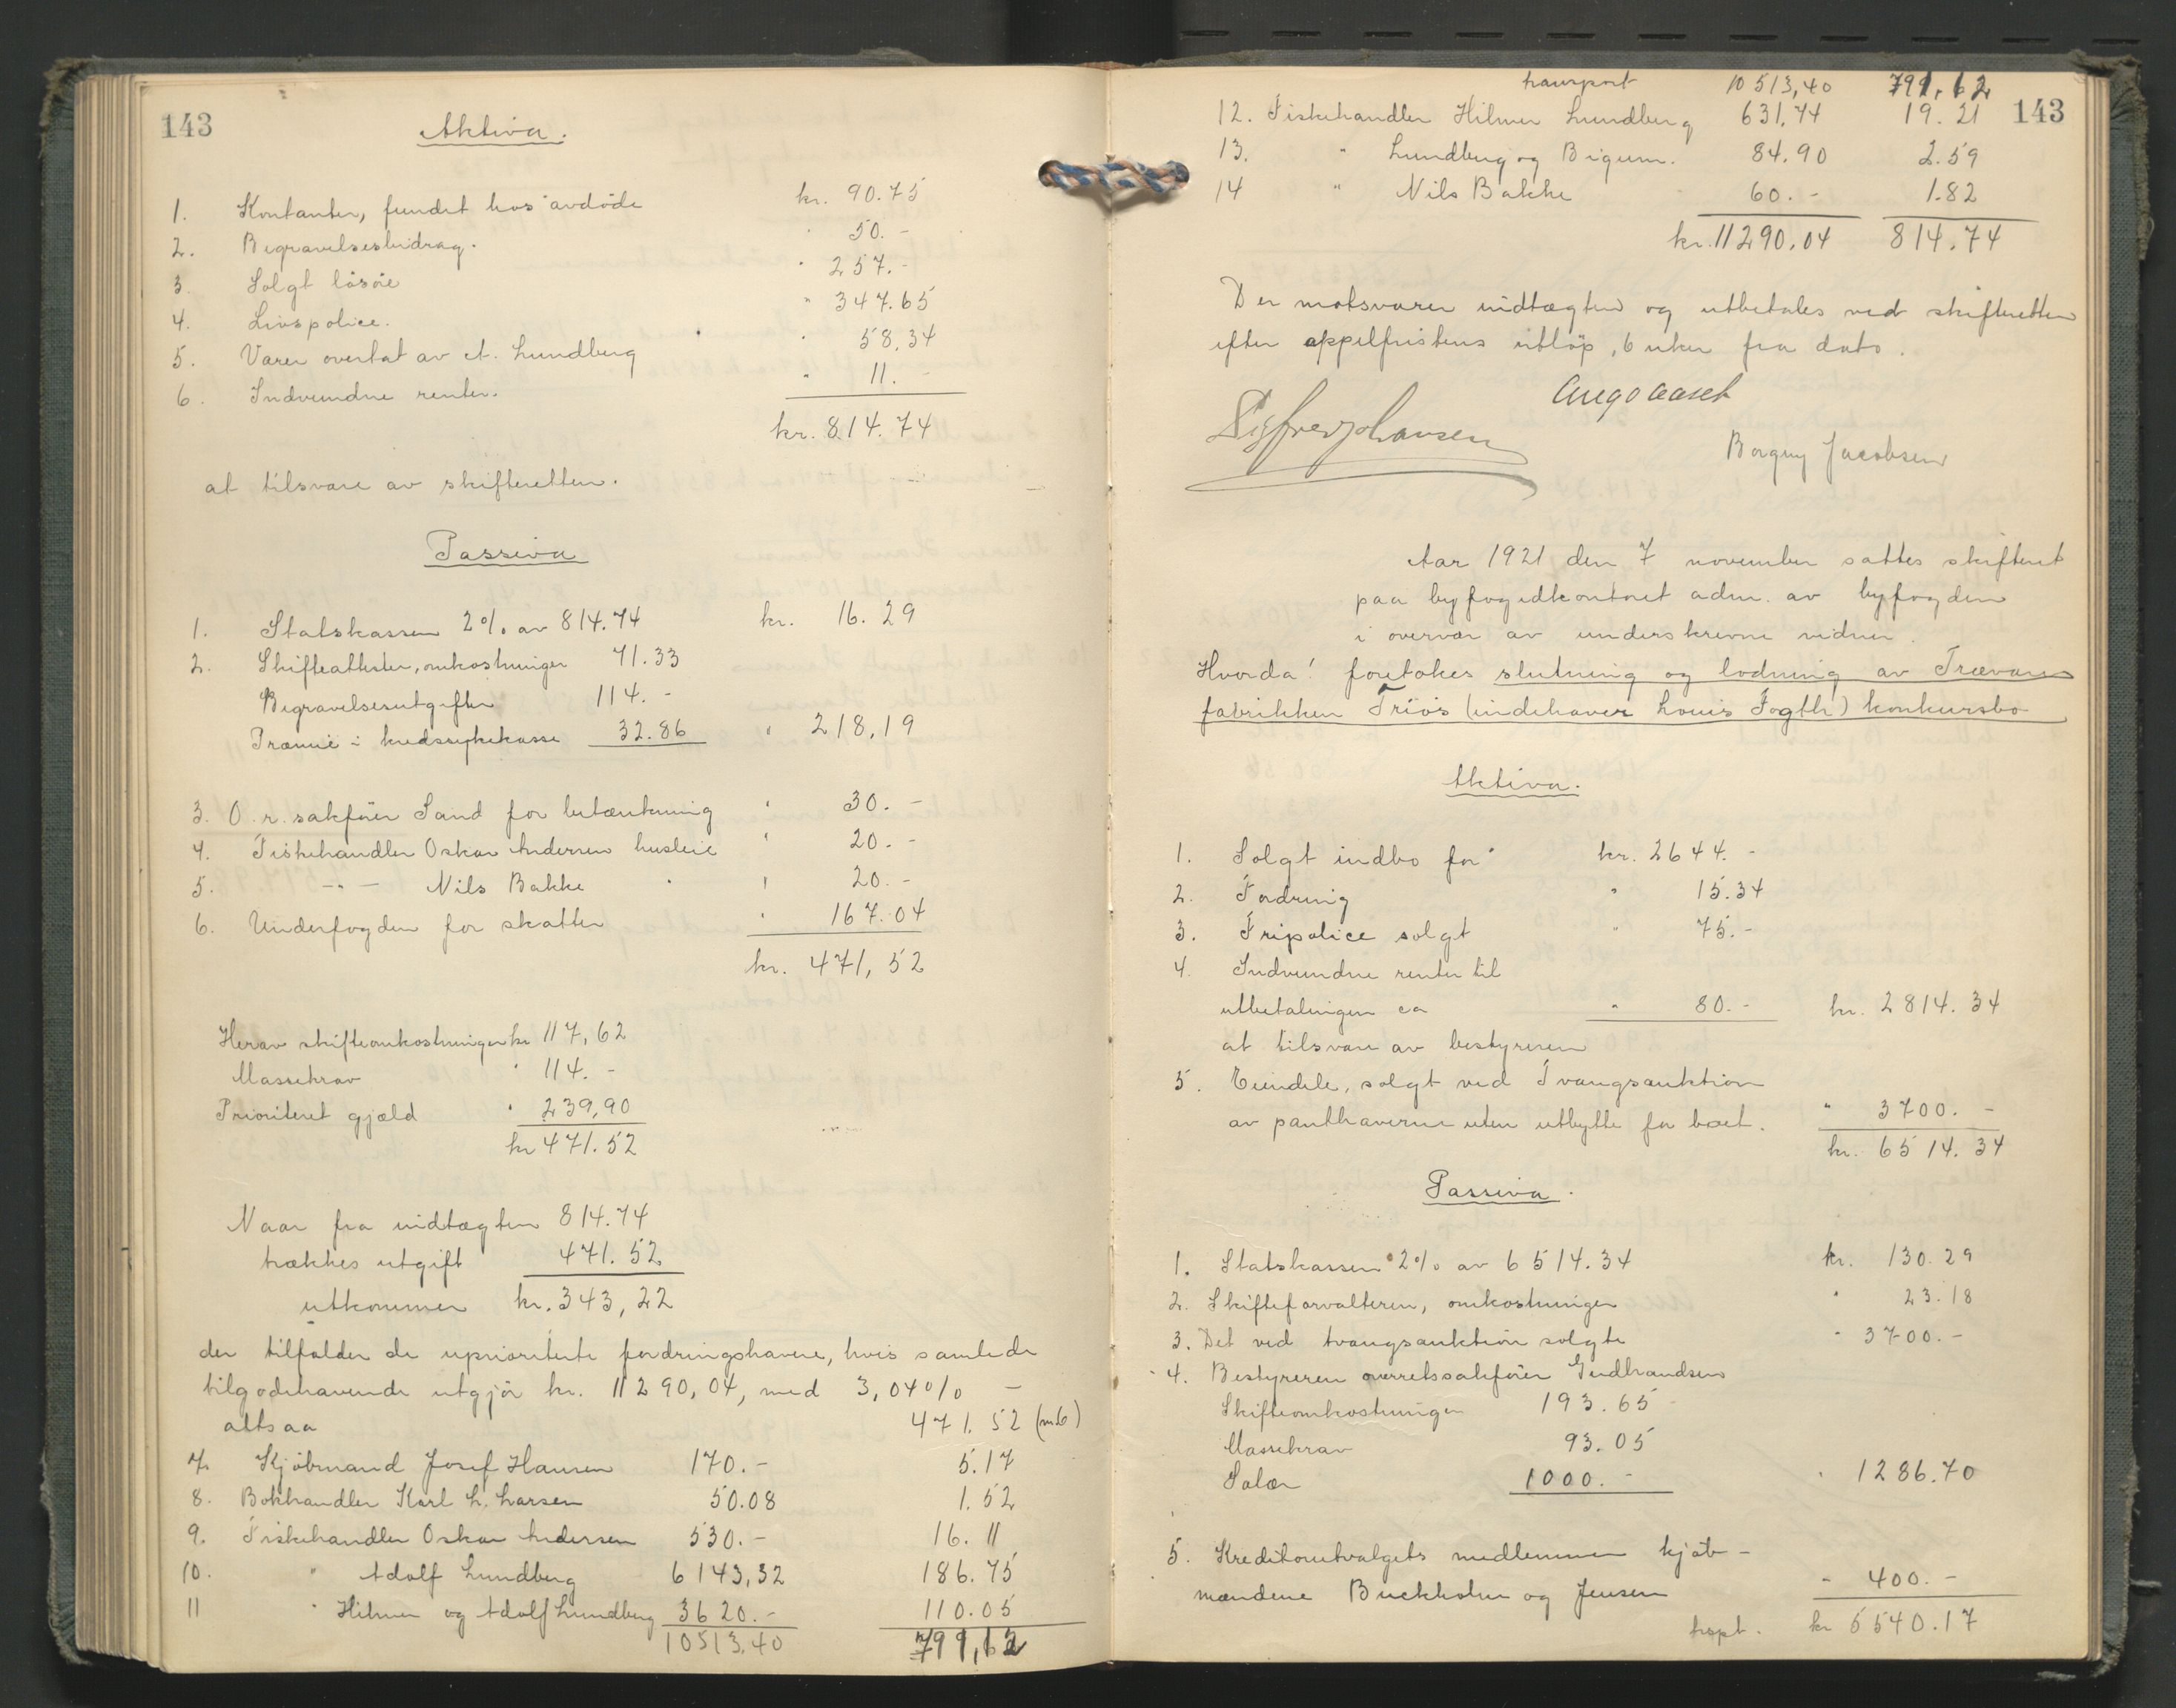 143
Aktiva.
1. Kontanter, fundet hos avdøde kr. 90.75
2. Begravelsesbidrag. " 50.-
3. Solgt løsøre " 257.-
4. Livspolice. " 347.65
5. Varer overtat av A. Lundberg " 58,34
6. Indvundne renter. " 11.-
kr. 814.74
at tilsvare av skifteretten.
Passiva
1. Statskassen 2% av 814.74 kr. 16.29
2. Skifteattester, omkostninger 71.33
Begravelsesutgifter 114.-
Præmie i kredssykekasse 32.86 " 218,19
3. O.r.sakfører Sand for betænkning " 30.-
4. Fiskehandler Oskar Andersen husleie " 20.-
5. -"- Nils Bakke " 20.-
6. Underfogden for skatter " 167.04
kr. 471,52
Herav skifteomkostninger kr 117,62
Massekrav " 114.-
Prioritert gjæld " 239,90
kr 471.52
Naar fra indtægten 814.74
trækkes utgift 471.52
utkommer kr. 343,22
der tilfalder de uprioriterte fordringshavere, hvis samlede
tilgodehavende utgjør kr. 11290,04, med 3,04% -
altsaa 471.52 (nr 6)
7. Kjøbmand Josef Hansen 170.- 5.17
8. Bokhandler Karl L. Larsen 50.08 1.52
9. Fiskehandler Oskar Andersen 530.- 16.11
10. " Adolf Lundberg 6143,32 186.75
11 " Hilmer og Adolf Lundberg 3620.- 110.05
10513,40 791,12
transport 10513,40 791,12
143
12. Fiskehandler Hilmer Lundberg 631,74 19.21
13. " Lundberg og Bigum. 84.90 2.59
14 " Nils Bakke 60.- 1.82
kr. 11290,04 814.74
Der motsvarer indtægten og utbetales ved skifteretten
efter appelfristens utløp, 6 uker fra dato.
Augo Aaset
Sigfred Johansen
Borgny Jacobsen
Aar 1921 den 7 november sattes skifteret
paa byfogedkontoret adm. av byfogden
i overvær av underskrevne vidner.
Hvorda! foretokes slutning og lodning av Trævare
fabrikken Triós (indehaver Louis Fogth) konkursbo
Aktiva.
1. Solgt indbo for kr. 2644.-
2. Fordring " 15.34
3. Fripolice solgt " 75.-
4. Indvundne renter til
utbetalingen ca " 80.- kr. 2814.34
at tilsvare av bestyreren
5. Eiendele, solgt ved Tvangsauktion
av panthaverne uten utbytte for boet. " 3700.-
kr. 6514.34
Passiva.
1. Statskassen 2% av 6514.34 kr. 130.29
2. Skifteforvalteren, omkostninger " 23.18
3. Det ved tvangsauktion solgte " 3700.-
4. Bestyreren overretssakfører Gudbrandsen
Skifteomkostninger 193.65
Massekrav 93.05
Salær 1000.- " 1286.70
5. Kreditorutvalgets medlemmer kjøb-
mændene Buckholm og Jensen " 400.-
trspt. kr 5540.17